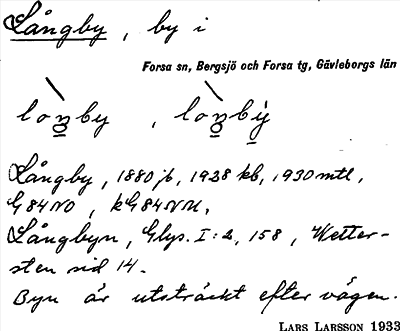 Långby, by i
Forsa sn, Bergsjö och Forsa tg, Gävleborgs län
loṉby, loṉby̱
Långby, 1880 jb, 1928 kb, 1930 mtl,
G84NO, kG84NM,
Långbyn, Glys. I:2, 158, Wetter-
sten sid 14.
Byn är utsträckt efter vägen.
LARS LARSSON 1933